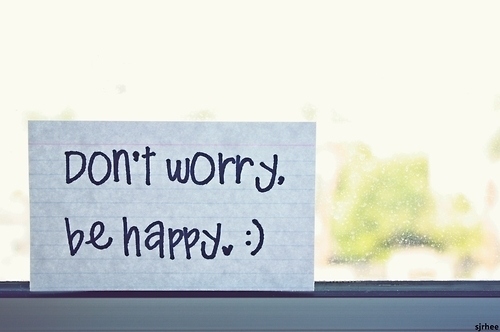 Don't worry,
be happy. :)
sjrhee